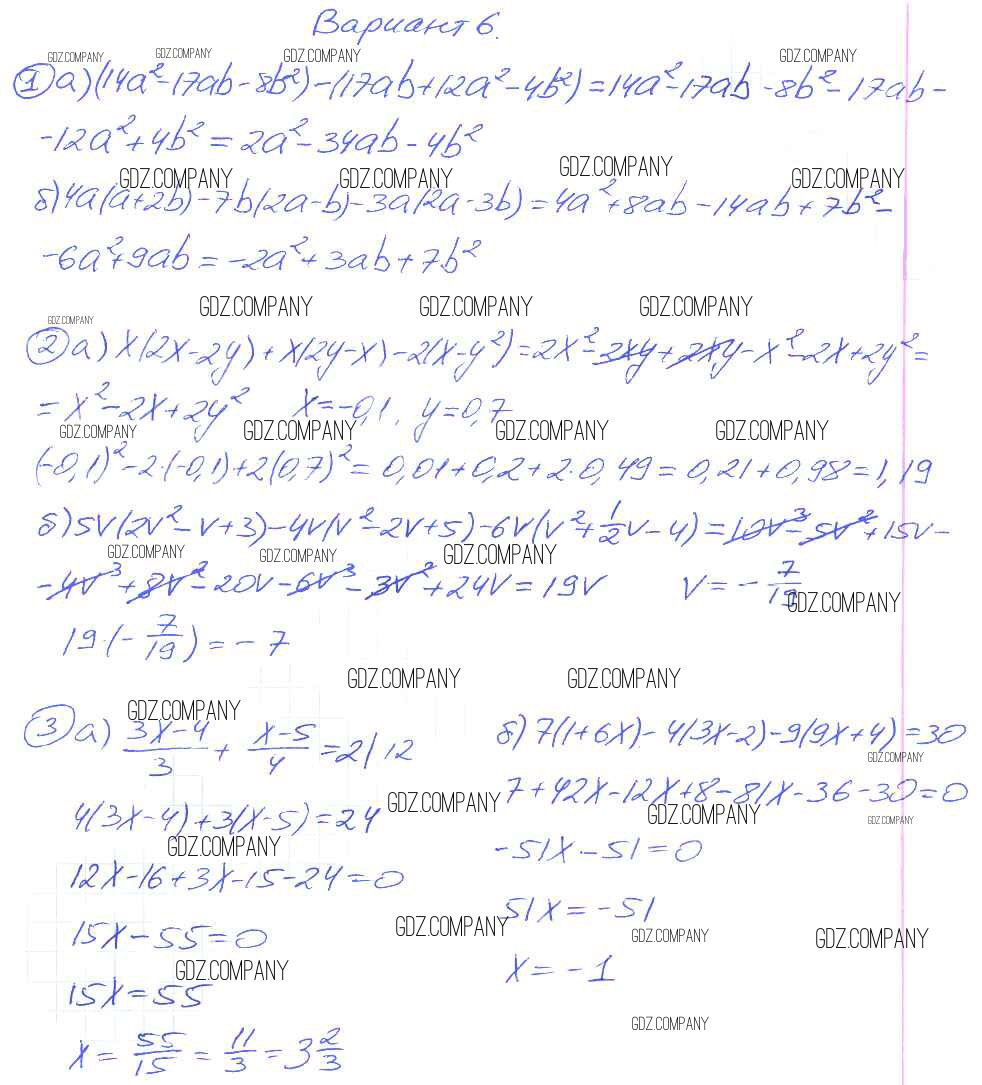 Вариант 6.
GDZ.COMPANY GDZ.COMPANY GDZ.COMPANY GDZ.COMPANY
① а) (14a² - 17ab - 8b²) - (17ab + 12a² - 4b²) = 14a² - 17ab - 8b² - 17ab -
- 12a² + 4b² = 2a² - 34ab - 4b²
GDZ.COMPANY GDZ.COMPANY GDZ.COMPANY GDZ.COMPANY
б) 4a(a + 2b) - 7b(2a - b) - 3a(2a - 3b) = 4a² + 8ab - 14ab + 7b² -
- 6a² + 9ab = - 2a² + 3ab + 7b²
GDZ.COMPANY GDZ.COMPANY GDZ.COMPANY GDZ.COMPANY
② а) x(2x - 2y) + x(2y - x) - 2(x - y²) = 2x² - 2xy + 2xy - x² - 2x + 2y² =
= x² - 2x + 2y² x = -0,1, y = 0,7
GDZ.COMPANY GDZ.COMPANY GDZ.COMPANY GDZ.COMPANY
(-0,1)² - 2·(-0,1) + 2(0,7)² = 0,01 + 0,2 + 2·0,49 = 0,21 + 0,98 = 1,19
б) 5v(2v² - v + 3) - 4v(v² - 2v + 5) - 6v(v² + 1/2 v - 4) = 10v³ - 5v² + 15v -
GDZ.COMPANY GDZ.COMPANY GDZ.COMPANY
- 4v³ + 8v² - 20v - 6v³ - 3v² + 24v = 19v v = - 7/19
GDZ.COMPANY
19·(- 7/19) = - 7
GDZ.COMPANY GDZ.COMPANY
GDZ.COMPANY
③ а) (3x - 4)/3 + (x - 5)/4 = 2 | 12
4(3x - 4) + 3(x - 5) = 24
GDZ.COMPANY
GDZ.COMPANY
12x - 16 + 3x - 15 - 24 = 0
15x - 55 = 0
GDZ.COMPANY
GDZ.COMPANY
15x = 55
x = 55/15 = 11/3 = 3 2/3
б) 7(1 + 6x) - 4(3x - 2) - 9(9x + 4) = 30
GDZ.COMPANY
7 + 42x - 12x + 8 - 81x - 36 - 30 = 0
GDZ.COMPANY GDZ.COMPANY
- 51x - 51 = 0
51x = - 51
GDZ.COMPANY GDZ.COMPANY
x = - 1
GDZ.COMPANY